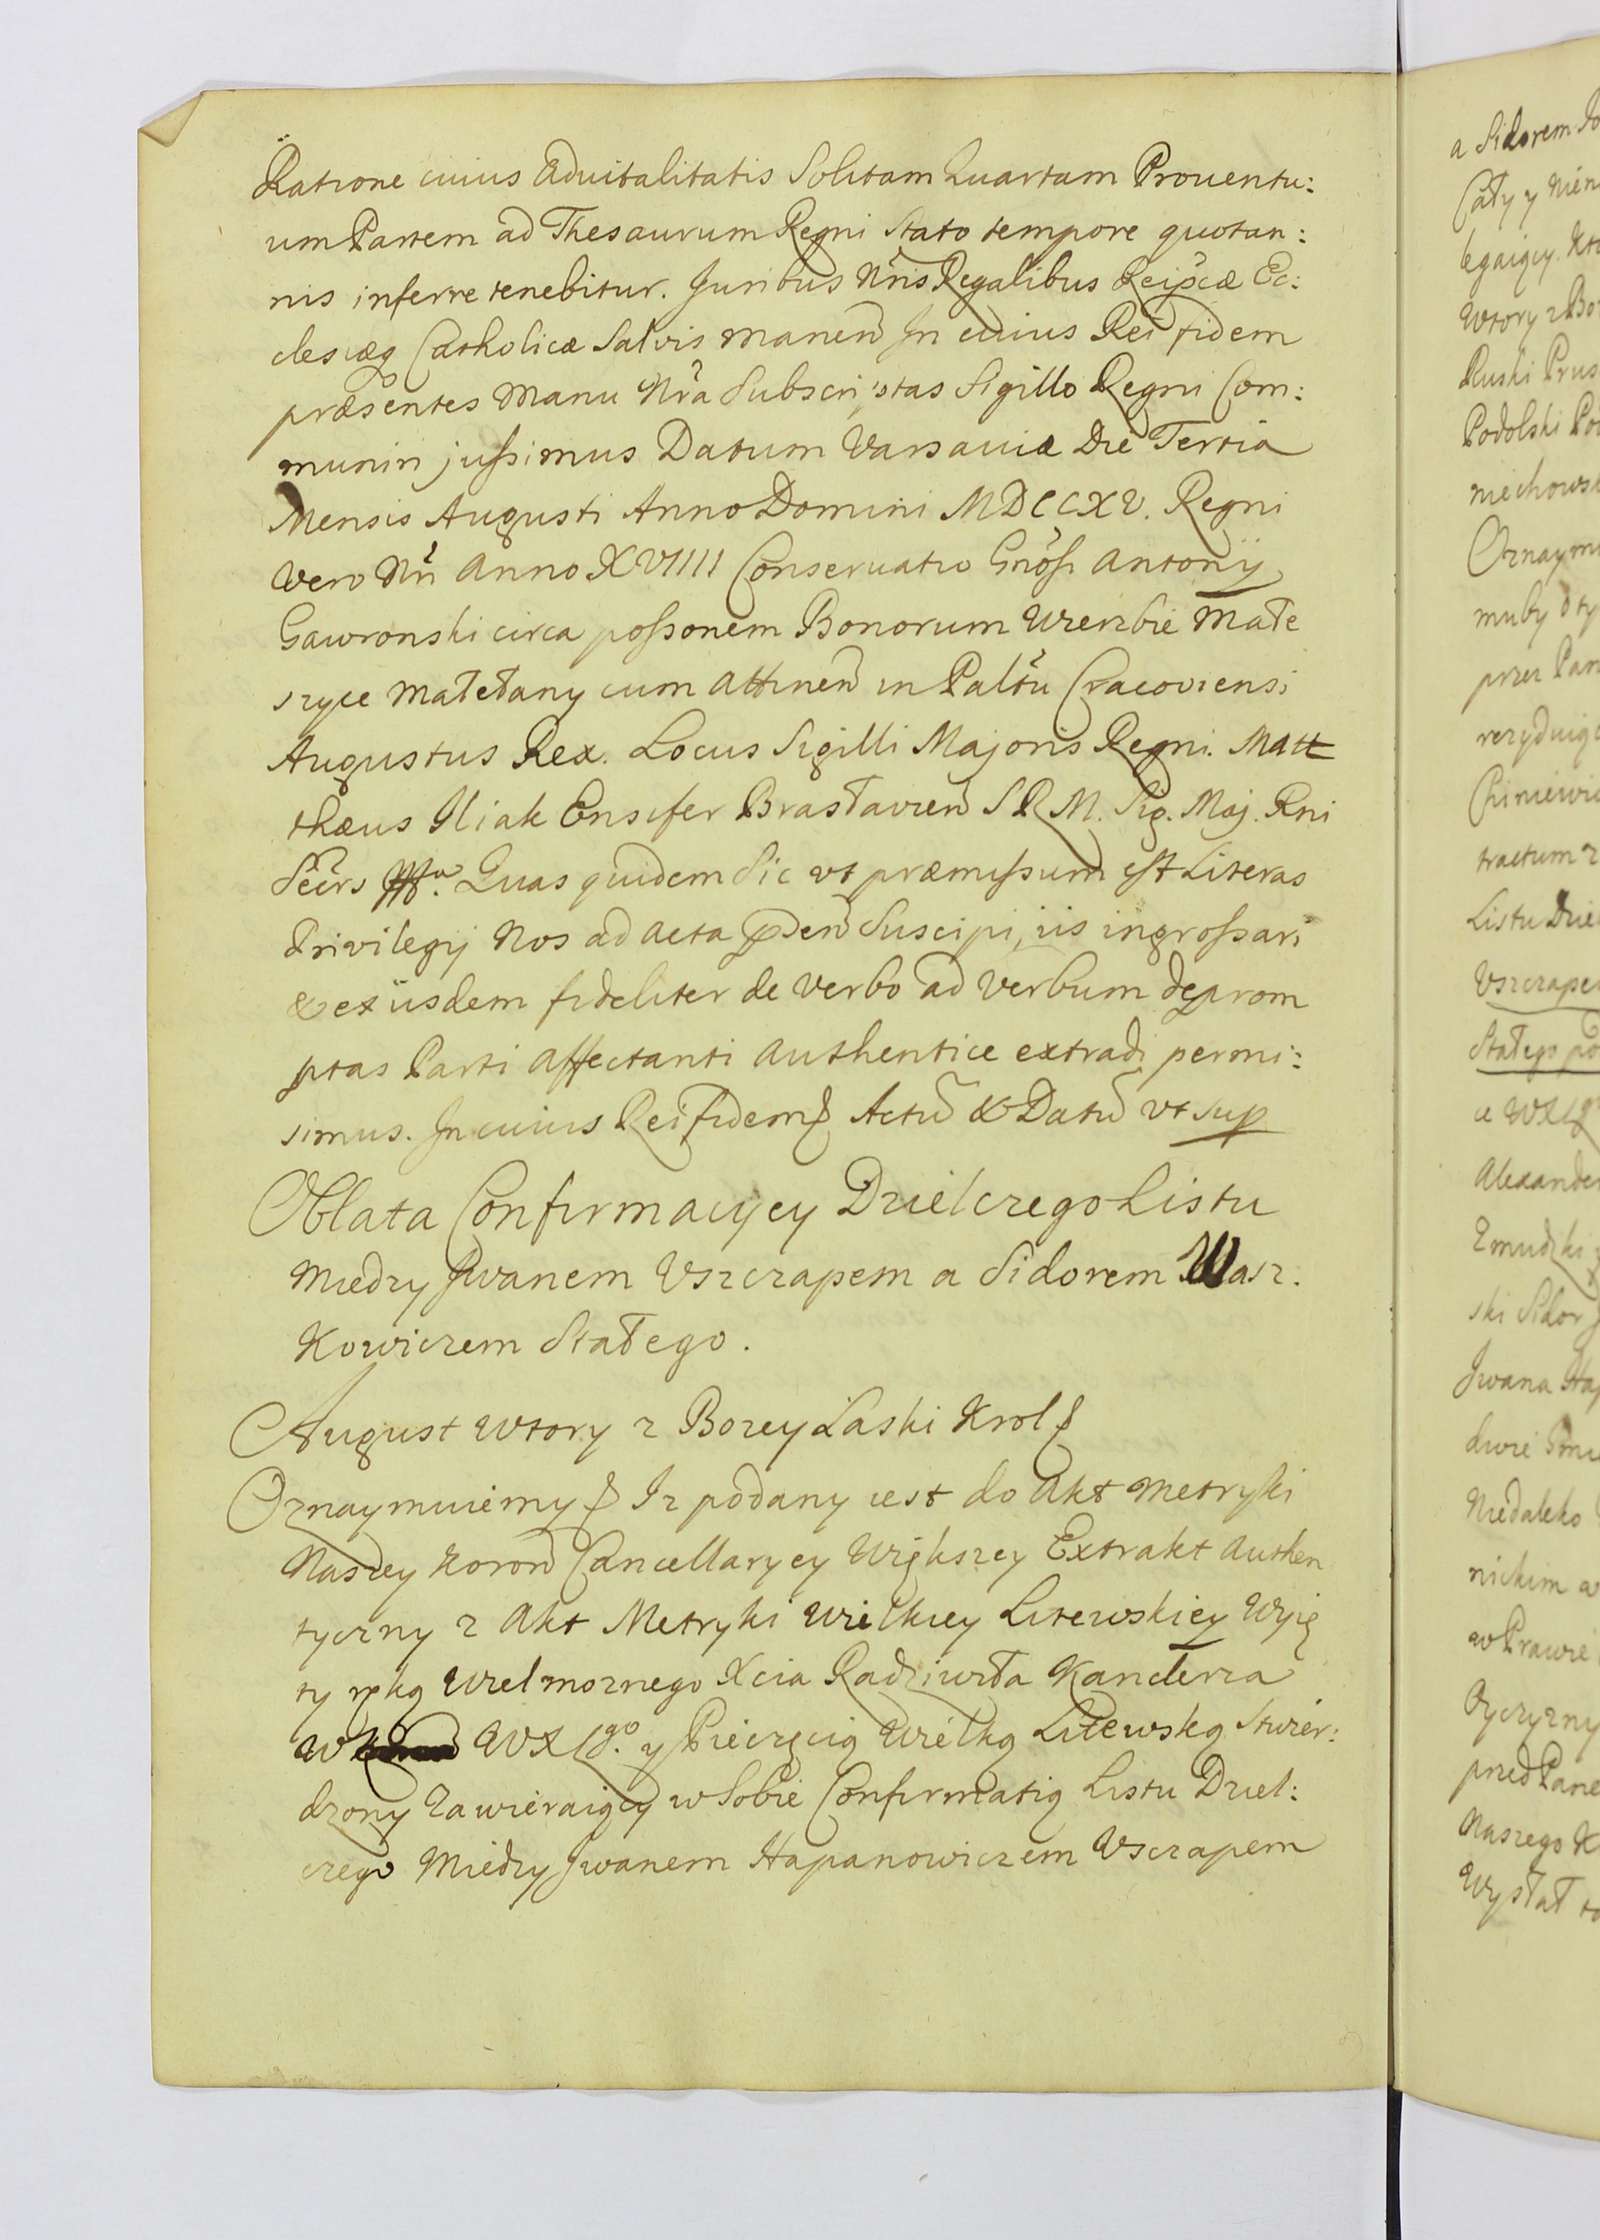 Ratione cuius aduitalitatis Solitam Quartam Prouentu:
um Partem ad Thesaurum Regni Stato tempore quotan:
nis inferre tenebitur. Juribus Nris Regalibus Reipcæ Ec:
clesiæq Catholicæ Salvis manen In cuius Rei fidem
præsentes manu Nra Subscriptas Sigillo Regni Com:
muniri jussimus Datum Varsaviæ Die Tertia
Mensis Augusti Anno Domini MDCCXV. Regni
vero Nri Anno XVIIII Conservatio Gnosi Antonij
Gawronski circa possonem Bonorum Wierzbie Małe
szyce Małełany cum attinen in Paltu Cracoviensi
Augustus Rex. Locus Sigilli Majoris Regni. Matt
thæus Iliak Ensifer Brasłavien S R M. Sig. Maj. Rni
Secrs Quas quidem Sic vt præmissum est Literas
Privilegij Nos ad acta Suscipi, iis ingrossari
& ex iisdem fideliter de verbo ad verbum deprom
ptas Parti affectanti authentice extradi permi:
simus. In cuius Rei fidem Actu & Datu vt sup
Oblata Confirmacyey Dzielczego Listu
Miedzy Jwanem Vszczapem a Sidorem Wasz.
Kowiczem Stałego.
August wtory z Bozey Łaski Krol
Oznaymuiemy Iz podany iest do Akt Metryki
Naszey koron Cancellaryey Większey Extrakt Authen
tyczny z Akt Metryki Wielkiey Litewskiey Wyię
ty ręką Wielmoznego Xcia Radziwiła Kanclerza
W WXLgo. y Pieczęcią Wielką Litewską Stwier:
dzony Zawieraiący w Sobie Confirmatią Listu Dziel:
czego Miedzy Jwanem Hapanowiczem Vsczapem
a Sidorem
Cały y
legaiący.
Wtory z
Ruski Prus
Podolski
niechows
Oznaymu
muby o ty
przez Pan
rezyduiąc
tractum z
Listu Dziel
Vszczape
Stałego
a WXLg
Alexander
Zmudzki
ski Sidor
Jwana Hap
dwie
Niedaleko
nickim
w Prawie
Oyczyzny
przed Pane
Naszego K
Wysłał